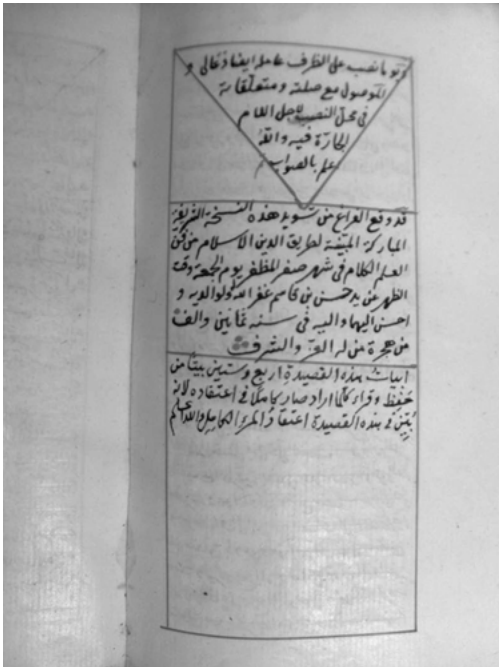 يومًا نصب على الظرف عامله ايضا دعاني و
الموصول مع صلته و متعلقاته
فى محل النصب لاجل اللام
الجارة فيه والله
اعلم بالصواب
قد وقع الفراغ من تسويد هذه النسخة الشريفة
المباركة المبيّنة لطريق الدين الاسلام من فن
العلم الكلام فى شهر صفر المظفر يوم الجمعة وقت
الظهر عن يد حسن بن قاسم غفر الله له ولوالديه و
احسن اليهما واليه فى سنه ثمانين والف
من هجرة من له العز والشرف
ابيات هذه القصيدة اربع وستين بيتًا من
حفظ وقراء كلها اراد صار كاملا فى اعتقاده لانه
بُيِّن فى هذه القصيدة اعتقادُ المرء الكامل والله اعلم